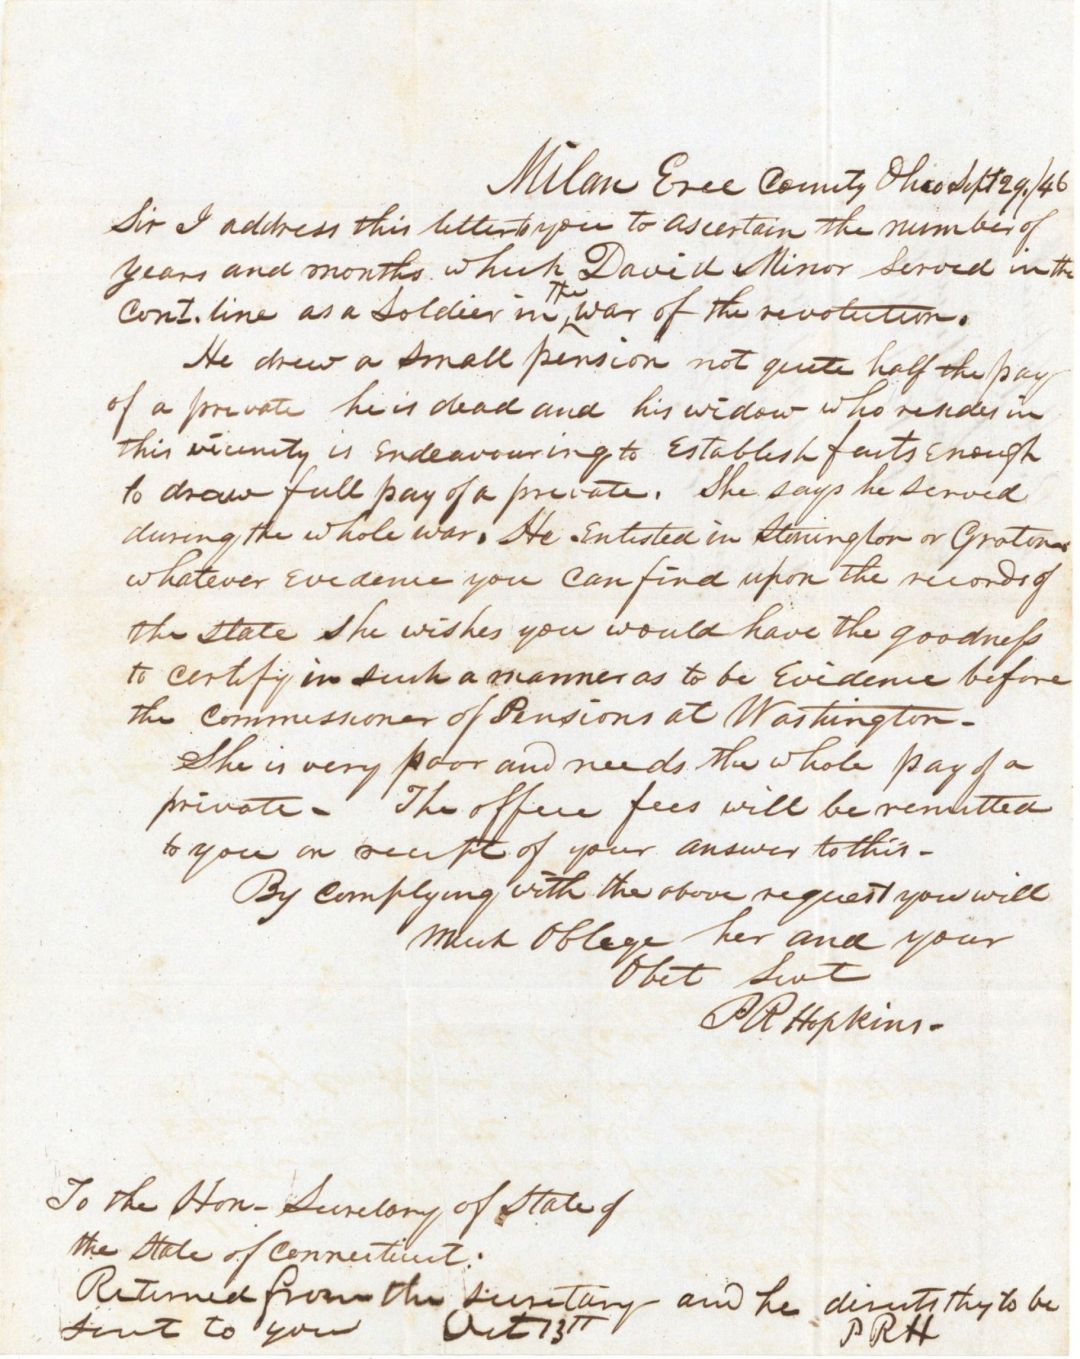 Milan Eree County Ohio Sept 29./46
Sir I address this letter to you to ascertain the number of
years and months which David Minor Served in the
Cont. line as a Soldier in The war of the revolution.
He drew a small pension not quite half the pay
of a private he is dead and his widow who resides in
this vicinity is Endeavouring to Establish facts Enough
to draw full pay of a private. She says he served
during the whole war. He Enlisted in Stonington or Groton
whatever Evidence you can find upon the records of
the state she wishes you would have the goodness
to certify in such a manner as to be Evidence before
the Commissioner of Pensions at Washington-
She is very poor and needs the whole pay of a
private- The office fees will be remitted
to you on receipt of your answer to this-
By complying with the above request you will
Much Oblege her and your
Obet Sevt
P R Hopkins-
To the Hon- Secretary of State of
the State of Connecticut.
Returned from the secretary and he directs they to be
sent to you Oct 13th P R H